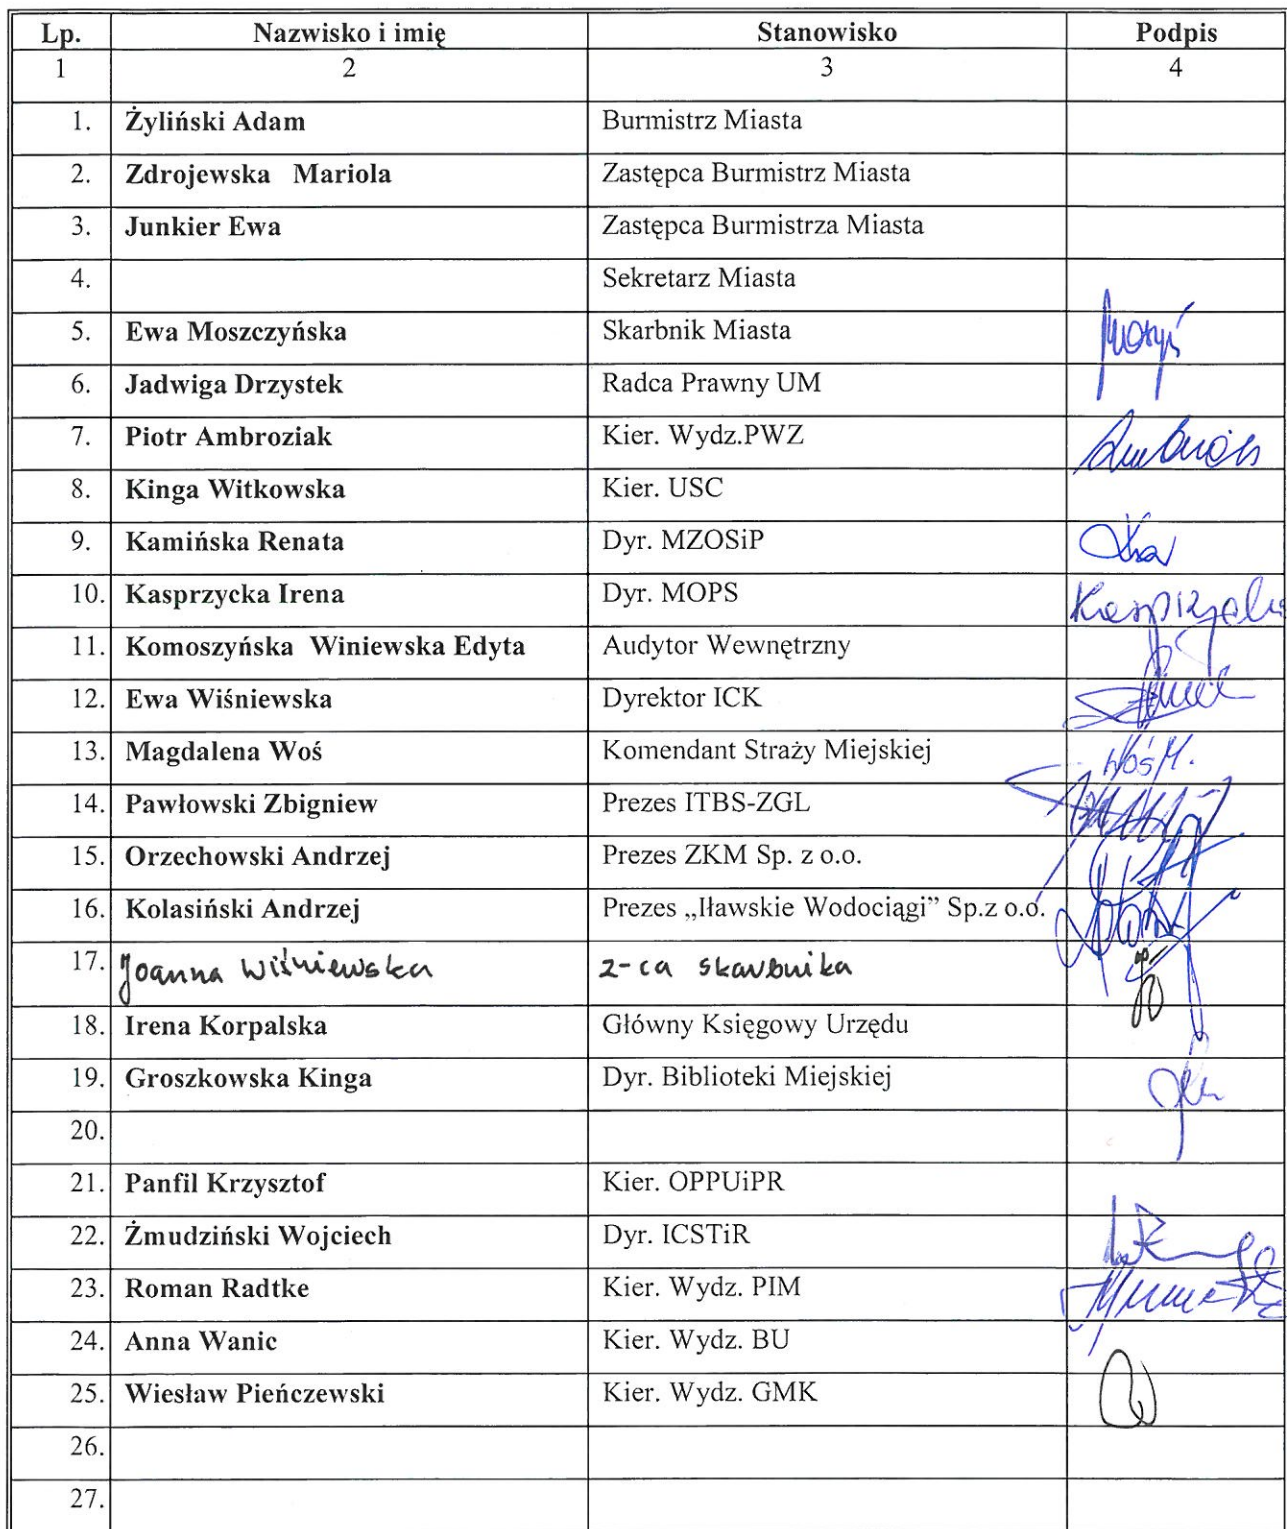 Lp. Nazwisko i imię Stanowisko Podpis
1 2 3 4
1. Żyliński Adam Burmistrz Miasta
2. Zdrojewska Mariola Zastępca Burmistrz Miasta
3. Junkier Ewa Zastępca Burmistrza Miasta
4. Sekretarz Miasta
5. Ewa Moszczyńska Skarbnik Miasta
6. Jadwiga Drzystek Radca Prawny UM
7. Piotr Ambroziak Kier. Wydz.PWZ
8. Kinga Witkowska Kier. USC
9. Kamińska Renata Dyr. MZOSiP
10. Kasprzycka Irena Dyr. MOPS
11. Komoszyńska Winiewska Edyta Audytor Wewnętrzny
12. Ewa Wiśniewska Dyrektor ICK
13. Magdalena Woś Komendant Straży Miejskiej Woś M.
14. Pawłowski Zbigniew Prezes ITBS-ZGL
15. Orzechowski Andrzej Prezes ZKM Sp. z o.o.
16. Kolasiński Andrzej Prezes „Iławskie Wodociągi” Sp.z o.o.
17. Joanna Wiśniewska z-ca skarbnika
18. Irena Korpalska Główny Księgowy Urzędu
19. Groszkowska Kinga Dyr. Biblioteki Miejskiej
20.
21. Panfil Krzysztof Kier. OPPUiPR
22. Żmudziński Wojciech Dyr. ICSTiR
23. Roman Radtke Kier. Wydz. PIM
24. Anna Wanic Kier. Wydz. BU
25. Wiesław Pieńczewski Kier. Wydz. GMK
26.
27.